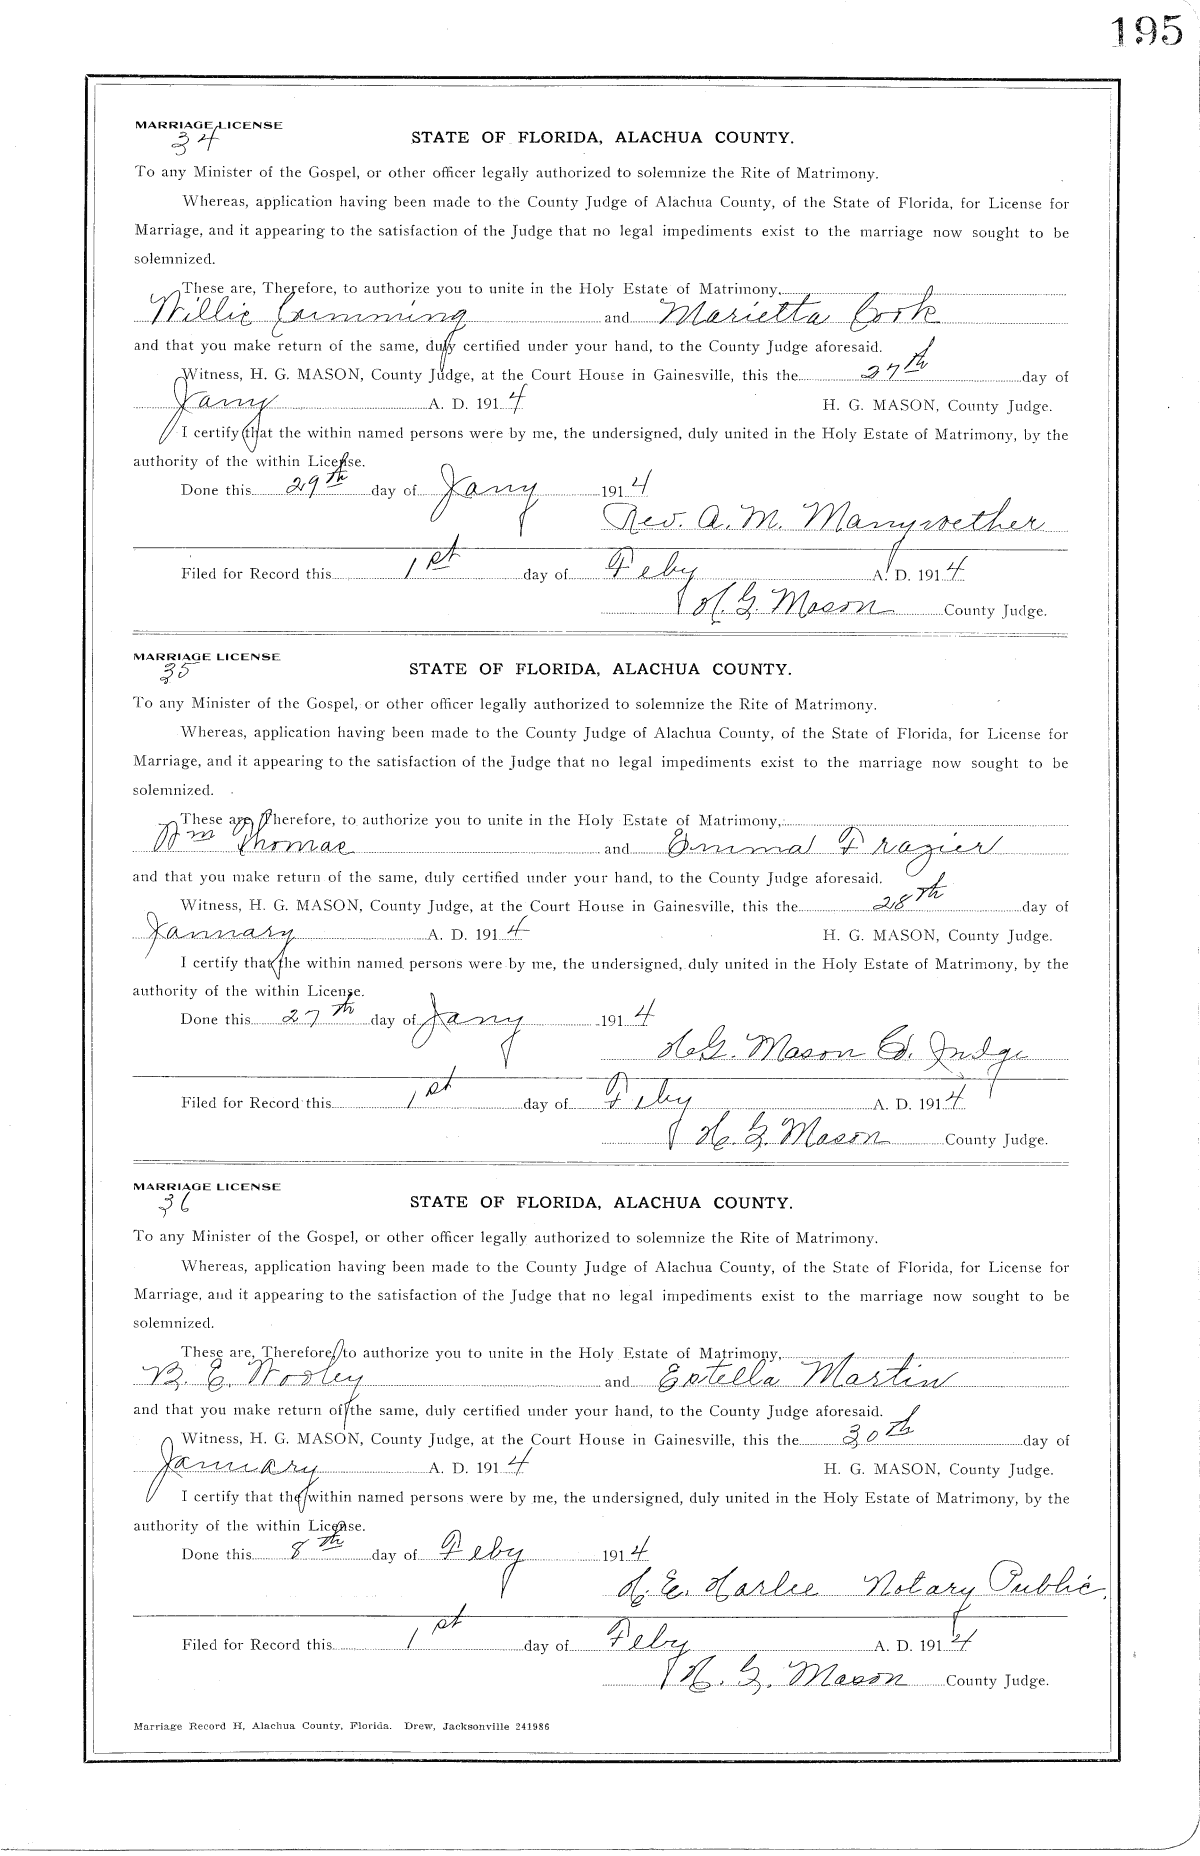 195
MARRIAGE LICENSE
34
STATE OF FLORIDA, ALACHUA COUNTY.
To any Minister of the Gospel, or other officer legally authorized to solemnize the Rite of Matrimony.
Whereas, application having been made to the County Judge of Alachua County, of the State of Florida, for License for
Marriage, and it appearing to the satisfaction of the Judge that no legal impediments exist to the marriage now sought to be
solemnized.
These are, Therefore, to authorize you to unite in the Holy Estate of Matrimony,
Willie Cumming and Marietta Cook
and that you make return of the same, duly certified under your hand, to the County Judge aforesaid.
Witness, H. G. MASON, County Judge, at the Court House in Gainesville, this the 27th day of
Jany A. D. 1914 H. G. MASON, County Judge.
I certify that the within named persons were by me, the undersigned, duly united in the Holy Estate of Matrimony, by the
authority of the within License.
Done this 29th day of Jany 1914
Rev. A. M. Manywether
Filed for Record this 1st day of Feby A. D. 1914
H. G. Mason County Judge.
MARRIAGE LICENSE
35
STATE OF FLORIDA, ALACHUA COUNTY.
To any Minister of the Gospel, or other officer legally authorized to solemnize the Rite of Matrimony.
Whereas, application having been made to the County Judge of Alachua County, of the State of Florida, for License for
Marriage, and it appearing to the satisfaction of the Judge that no legal impediments exist to the marriage now sought to be
solemnized.
These are, Therefore, to authorize you to unite in the Holy Estate of Matrimony,
Wm Thomas and Emma Frazier
and that you make return of the same, duly certified under your hand, to the County Judge aforesaid.
Witness, H. G. MASON, County Judge, at the Court House in Gainesville, this the 28th day of
January A. D. 1914 H. G. MASON, County Judge.
I certify that the within named persons were by me, the undersigned, duly united in the Holy Estate of Matrimony, by the
authority of the within License.
Done this 27th day of Jany 1914
H. G. Mason Co. Judge
Filed for Record this 1st day of Feby A. D. 1914
H. G. Mason County Judge.
MARRIAGE LICENSE
36
STATE OF FLORIDA, ALACHUA COUNTY.
To any Minister of the Gospel, or other officer legally authorized to solemnize the Rite of Matrimony.
Whereas, application having been made to the County Judge of Alachua County, of the State of Florida, for License for
Marriage, and it appearing to the satisfaction of the Judge that no legal impediments exist to the marriage now sought to be
solemnized.
These are, Therefore, to authorize you to unite in the Holy Estate of Matrimony,
B. E. Wooley and Estella Martin
and that you make return of the same, duly certified under your hand, to the County Judge aforesaid.
Witness, H. G. MASON, County Judge, at the Court House in Gainesville, this the 30th day of
January A. D. 1914 H. G. MASON, County Judge.
I certify that the within named persons were by me, the undersigned, duly united in the Holy Estate of Matrimony, by the
authority of the within License.
Done this 8th day of Feby 1914
H. E. Harlee Notary Public.
Filed for Record this 1st day of Feby A. D. 1914
H. G. Mason County Judge.
Marriage Record H, Alachua County, Florida. Drew, Jacksonville 241986